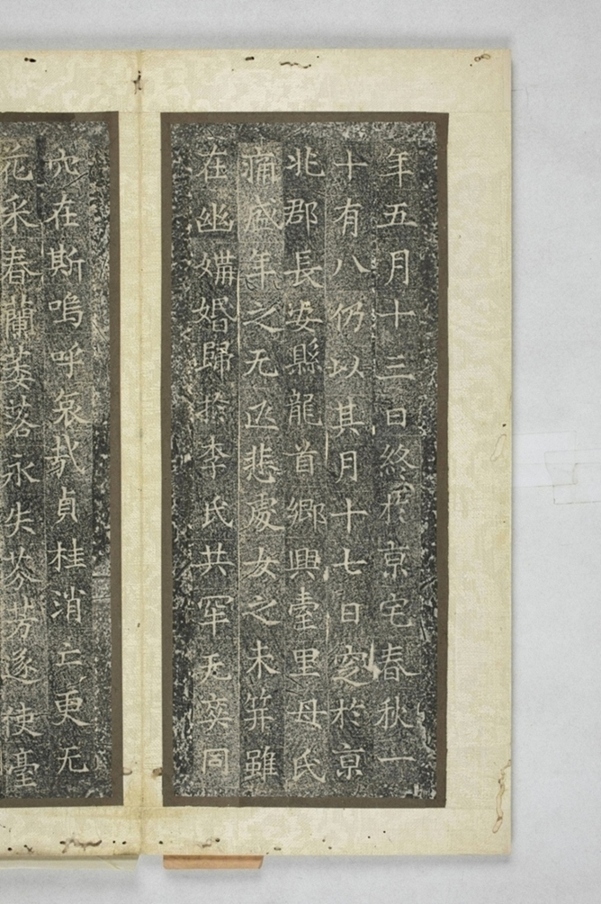 年五月十三日終扵京宅春秋一
十有八仍以其月十七日窆於京
兆郡長安縣龍首鄉興臺里母氏
痛盛年之无匹悲處女之未笄雖
在幽媾婚歸扵李氏共牢无爽同
穴在斯嗚呼哀哉貞桂消亡更无
花采春蘭萎落永失芬芳遂使臺